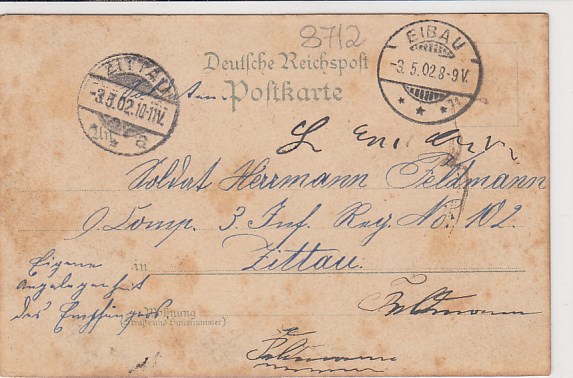 8712
Deutsche Reichspost
Postkarte
ZITTAU
-3.5.02.10-11V.
a
EIBAU
-3.5.02 8-9V.
Soldat Herrmann Feldmann
9. Comp. 3. Inf. Reg. No. 102.
in Zittau.
Eigene
Angelegenheit
des Empfängers.
Wohnung
(Straße und Hausnummer)
Feldmann